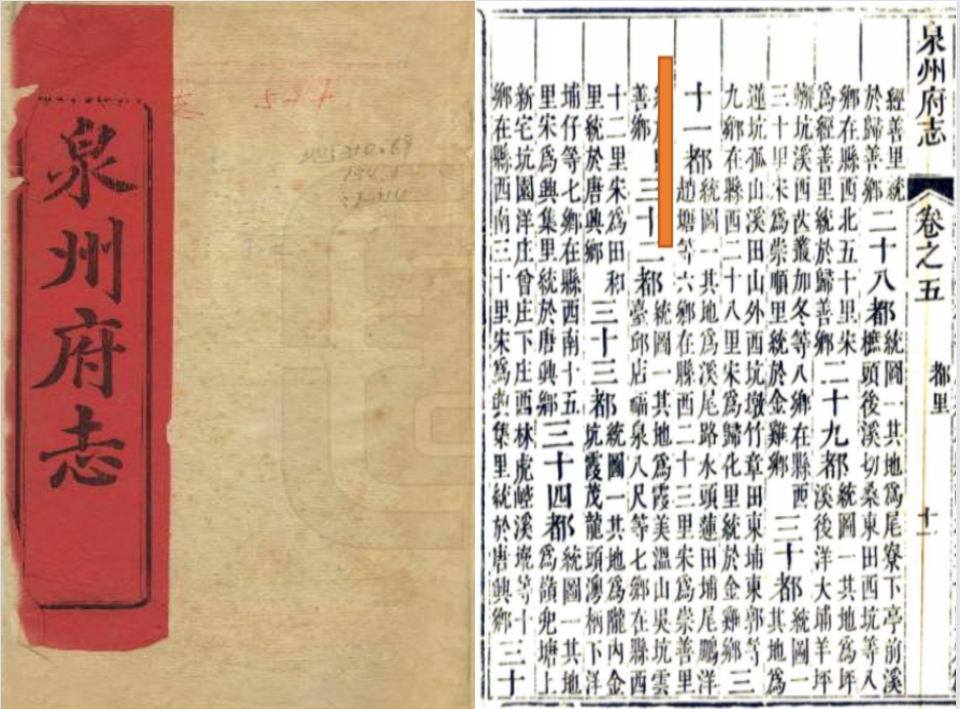 泉州府志
泉州府志 卷之五 都里 十一
經善里統
於歸善鄉
二十八都
統圖一其地爲尾寮下亭前溪
樵頭後溪切桑東田西坑等八
鄉在縣西北五十里宋
爲經善里統於歸善鄉
二十九都
統圖一其地爲坪
溪後洋大埔羊坪
坑溪西叢加冬等八鄉在縣西
三十里宋爲崇順里統於金雞鄉
三十都
統圖一
其地爲
蓮坑孤山溪田山外西坑墩竹章田東埔東郭等
九鄉在縣西二十八里宋爲歸化里統於金雞鄉
三
十一都
統圖一其地爲溪尾路水頭蓮田埔尾鵬洋
趙塘等六鄉在縣西二十三里宋爲崇善里
善鄉
三十二都
統圖一其地爲霞美溫山吳坑雲
臺邱店福泉八尺等七鄉在縣西
十二里宋爲田和
里統於唐興鄉
三十三都
統圖一其地爲隴內金
坑霞茂龍頭澳柄下洋
埔仔等七鄉在縣西南十五
里宋爲興集里統於唐興鄉
三十四都
統圖一其地
爲嶺兜塘上
新宅坑園洋庄曾庄下庄西林虎崆溪等十
鄉在縣西南三十里宋爲興集里統於唐興鄉
三十